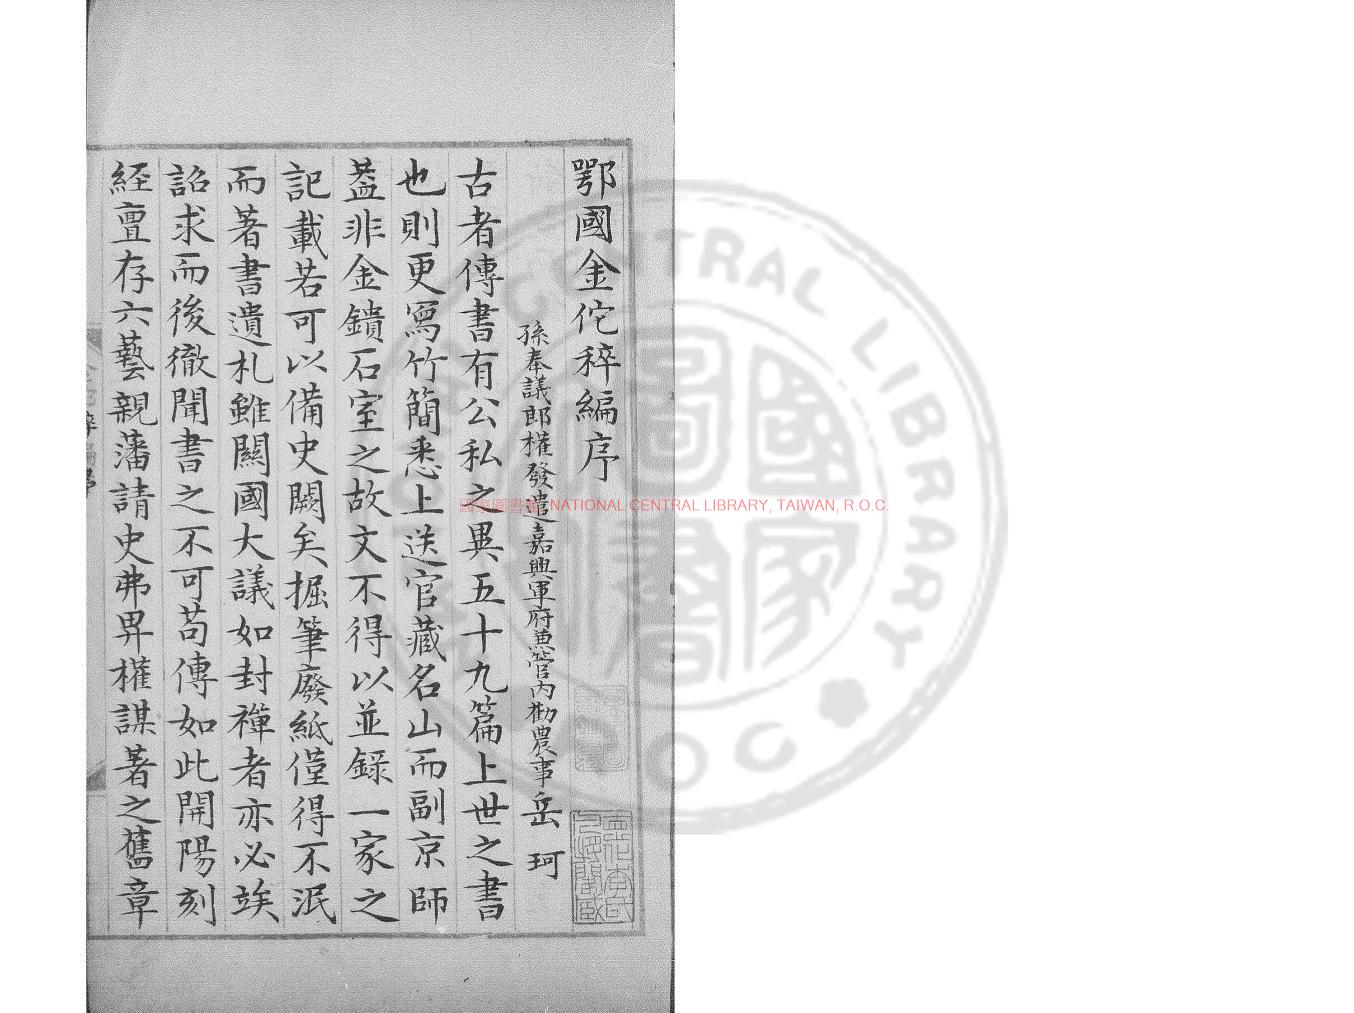 鄂國金佗稡編序
孫奉議郎權發遣嘉興軍府兼管內勸農事岳珂
古者傳書有公私之異五十九篇上世之書
也則更寫竹簡悉上送官藏名山而副京師
葢非金鐀石室之故文不得以並錄一家之
記載若可以備史闕矣掘筆廢紙僅得不泯
而著書遺札雖關國大議如封禪者亦必竢
詔求而後徹聞書之不可苟傳如此開陽刻
経亶存六藝親藩請史弗畀權謀著之舊章
國家圖書館 NATIONAL CENTRAL LIBRARY, TAIWAN, R.O.C.
NATIONAL CENTRAL LIBRARY
R.O.C.
國家圖書館